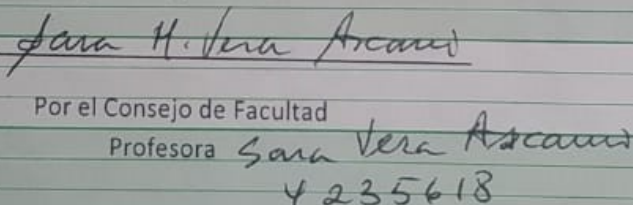 Sara H. Vera Ascanio
Por el Consejo de Facultad
Profesora Sara Vera Ascanio
4235618